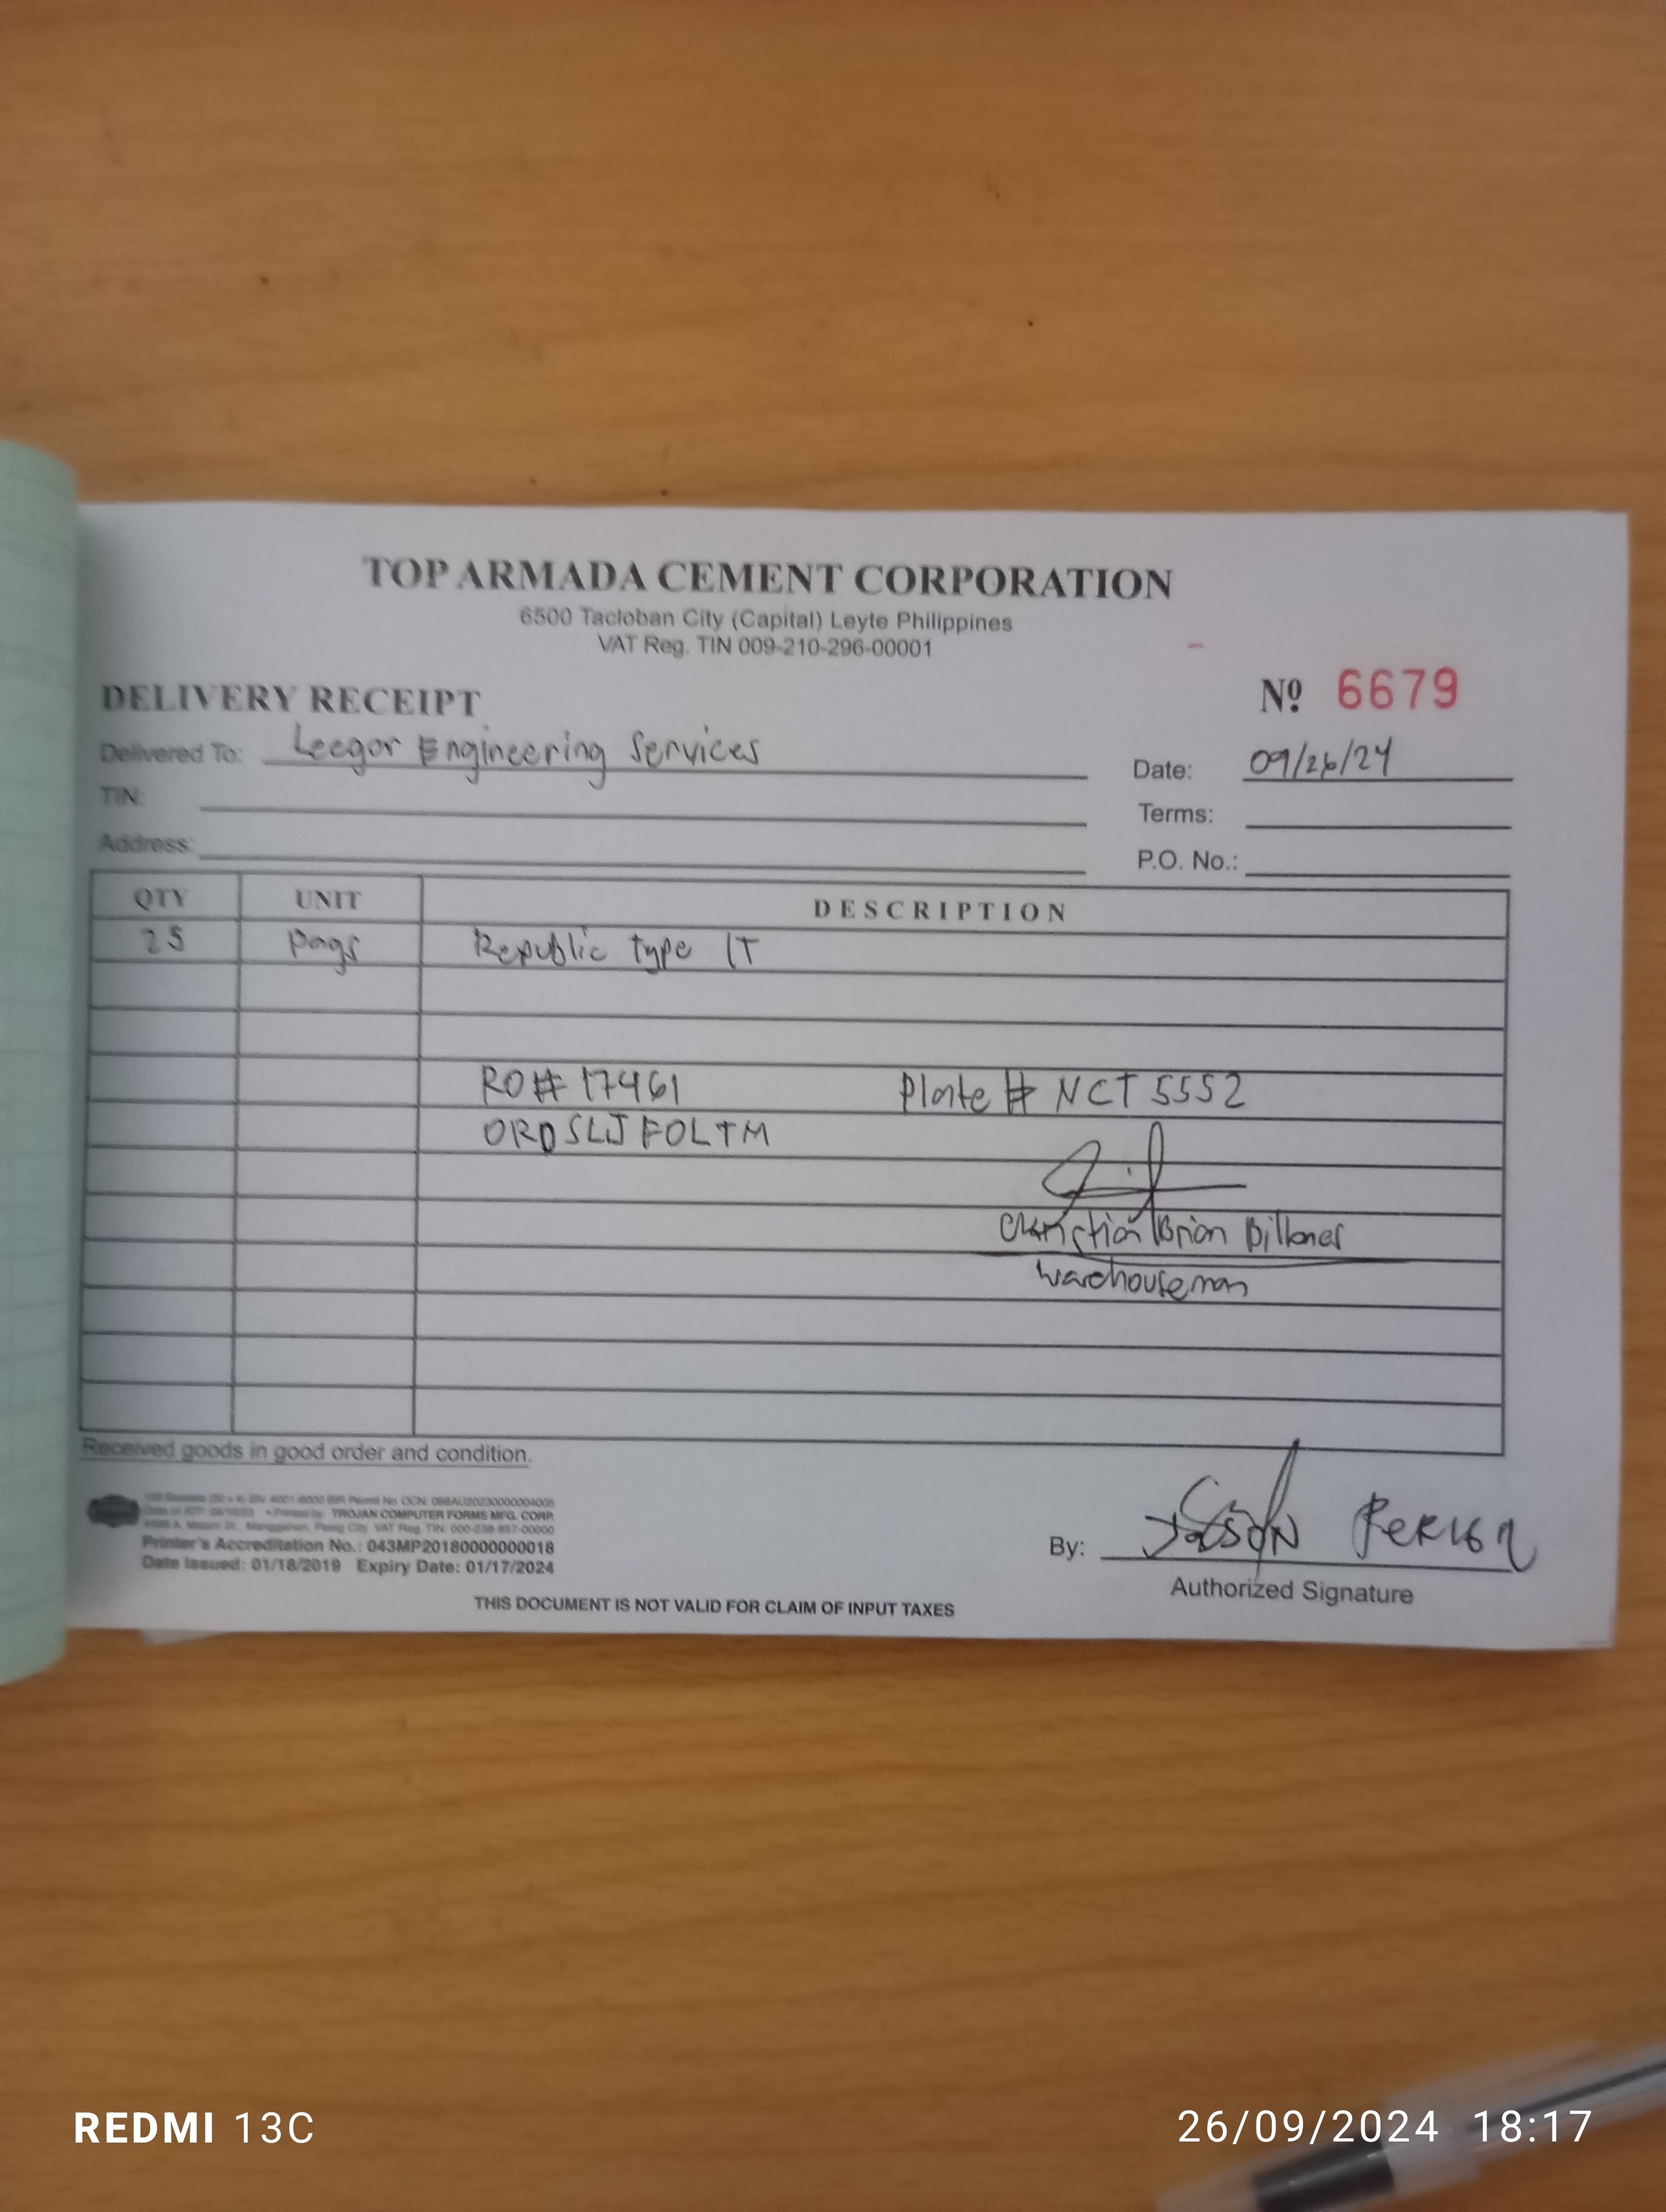 TOP ARMADA CEMENT CORPORATION
6500 Tacloban City (Capital) Leyte Philippines
VAT Reg. TIN 009-210-296-00001
DELIVERY RECEIPT
Nº 6679
Delivered To: Leegor Engineering Services
Date: 09/26/24
TIN:
Terms:
Address:
P.O. No.:
QTY UNIT DESCRIPTION
25 bags Republic type 1T
RO# 17461 Plate # NCT 5552
ORDSLJFOLTM
Christian Brian Billones
warehouseman
Received goods in good order and condition.
BIR Permit No. OCN: 088AU20230000004005
Printed by: TROJAN COMPUTER FORMS MFG. CORP.
Pasig City VAT Reg. TIN: 000-238-857-00000
Printer's Accreditation No.: 043MP20180000000018
Date Issued: 01/18/2019 Expiry Date: 01/17/2024
By:
Authorized Signature
THIS DOCUMENT IS NOT VALID FOR CLAIM OF INPUT TAXES
REDMI 13C
26/09/2024 18:17